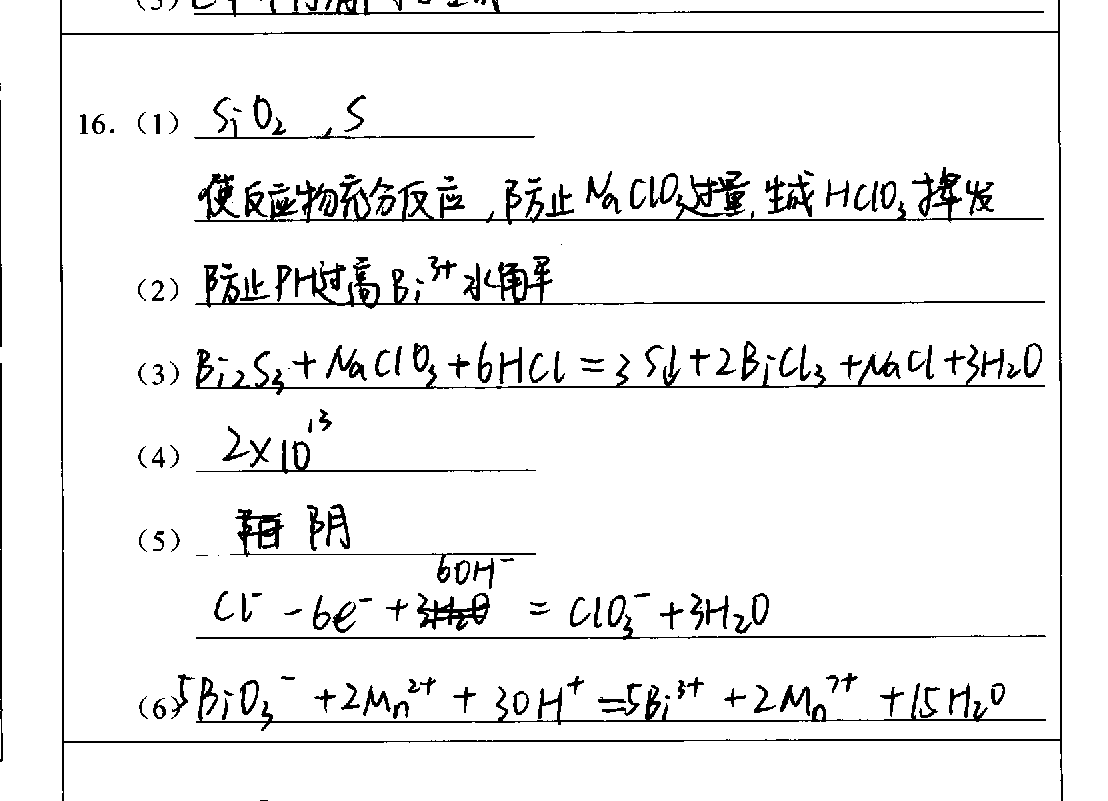 16.（1） SiO₂ , S
使反应物充分反应，防止NaClO₃过量,生成HClO₃挥发
（2） 防止PH过高Bi³⁺水解
（3） Bi₂S₃+NaClO₃+6HCl=3S↓+2BiCl₃+NaCl+3H₂O
（4） 2×10¹³
（5） 阴
Cl⁻-6e⁻+6OH⁻=ClO₃⁻+3H₂O
（6） 5BiO₃⁻+2Mn²⁺+30H⁺=5Bi³⁺+2Mn⁷⁺+15H₂O